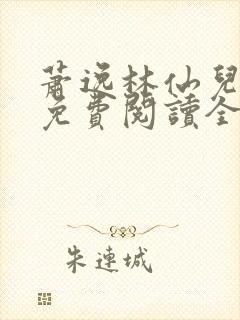 蕭逸林仙兒
免費閱讀全
朱連城